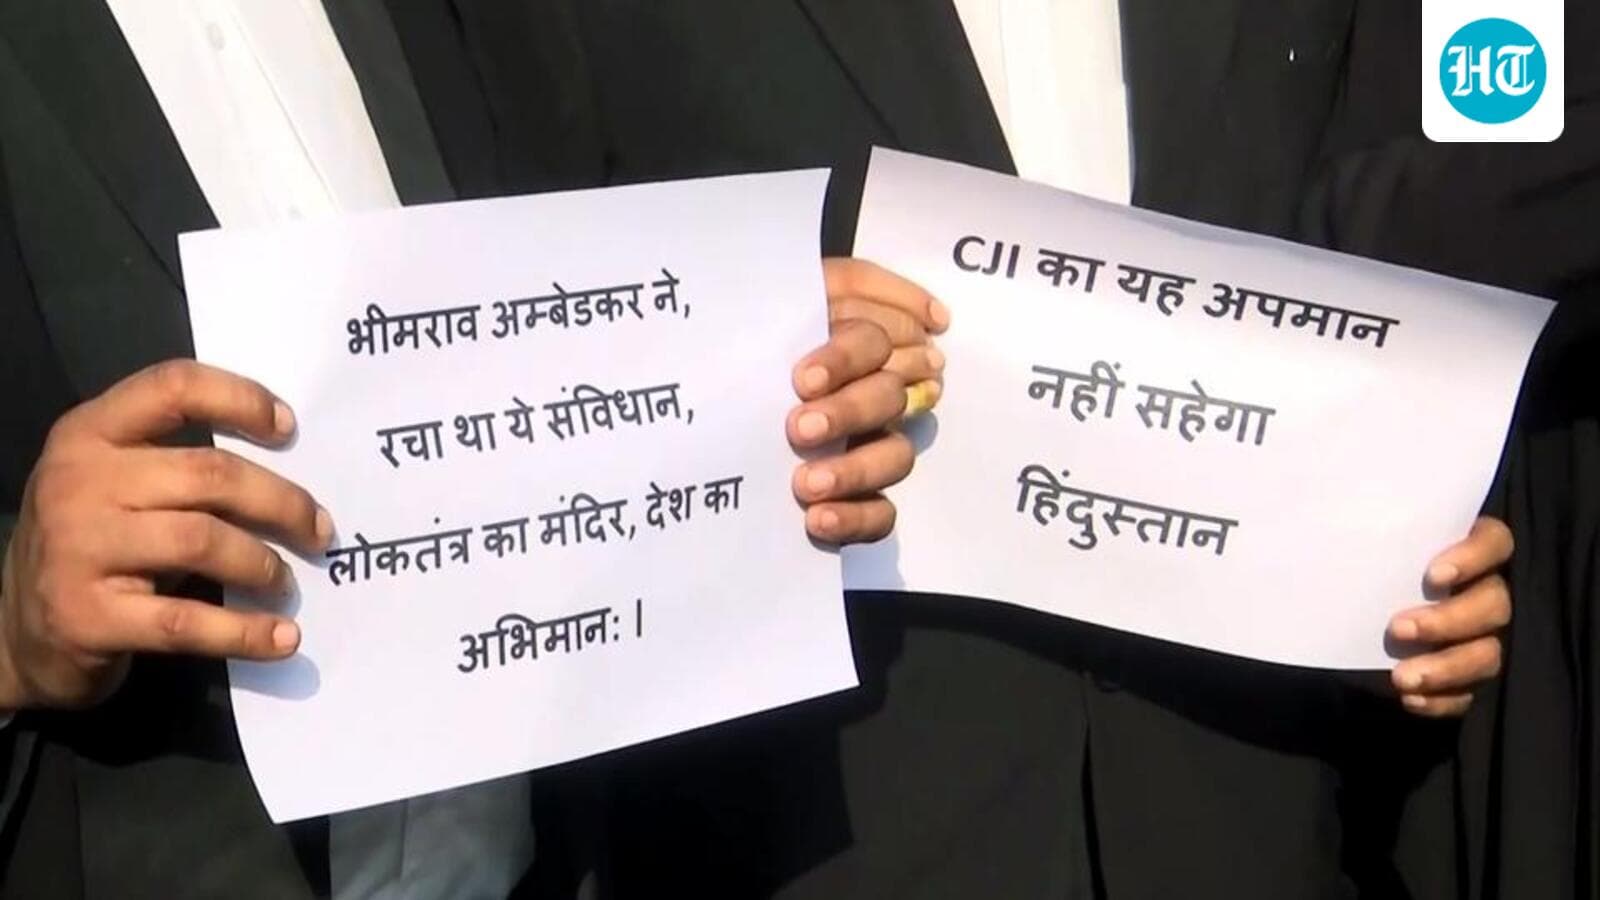 HT
भीमराव अम्बेडकर ने,
रचा था ये संविधान,
लोकतंत्र का मंदिर, देश का
अभिमान: |
CJI का यह अपमान
नहीं सहेगा
हिंदुस्तान